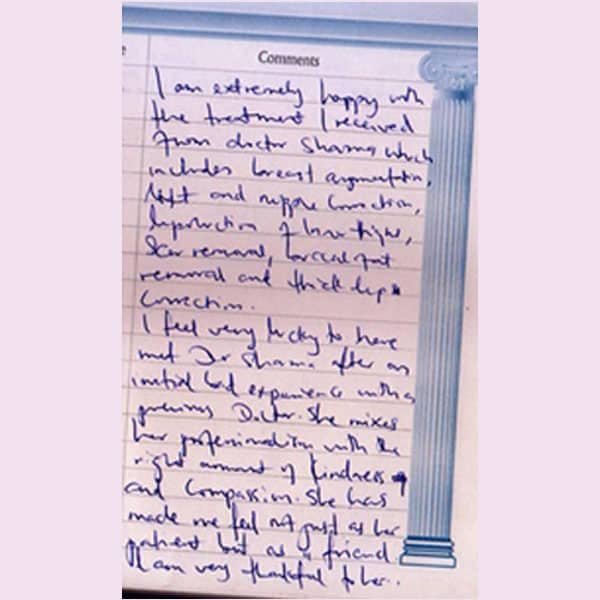 Comments
I am extremely happy with
the treatment I received
from doctor Sharma which
includes breast augmentation,
lift and nipple correction,
liposuction of inner thighs,
Scar removal, buccal fat
removal and thick lip
Correction.
I feel very lucky to have
met Dr Sharma after an
initial bad experience with a
previous Doctor. She mixes
her professionalism with the
right amount of kindness
and Compassion. She has
made me feel not just as her
patient but as a friend.
I am very thankful to her.